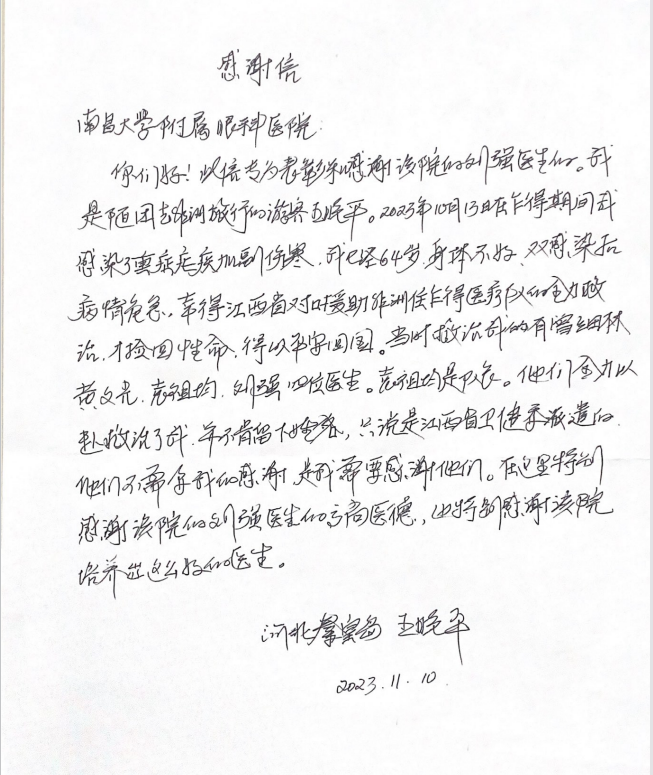 感谢信
南昌大学附属眼科医院:
你们好!此信专为表彰和感谢该院的刘强医生的。我
是随团去非洲旅行的游客王晓平。2023年10月13日在乍得期间我
感染了重症疟疾加副伤寒、我已经64岁,身体不好,双感染后
病情危急,幸得江西省对口援助非洲侯乍得医疗队的全力救
治,才捡回性命,得以平安回国。当时救治我的有曾细林
黄文光、袁祖均、刘强四位医生。袁祖均是队长。他们全力以
赴救治了我,并不肯留下姓名,只说是江西省卫健委派遣的.
他们不需要我的感谢,是我需要感谢他们。在这里特别
感谢该院的刘强医生的高医德,也特别感谢该院
培养出这么好的医生。
河北秦皇岛 王晓平
2023.11.10